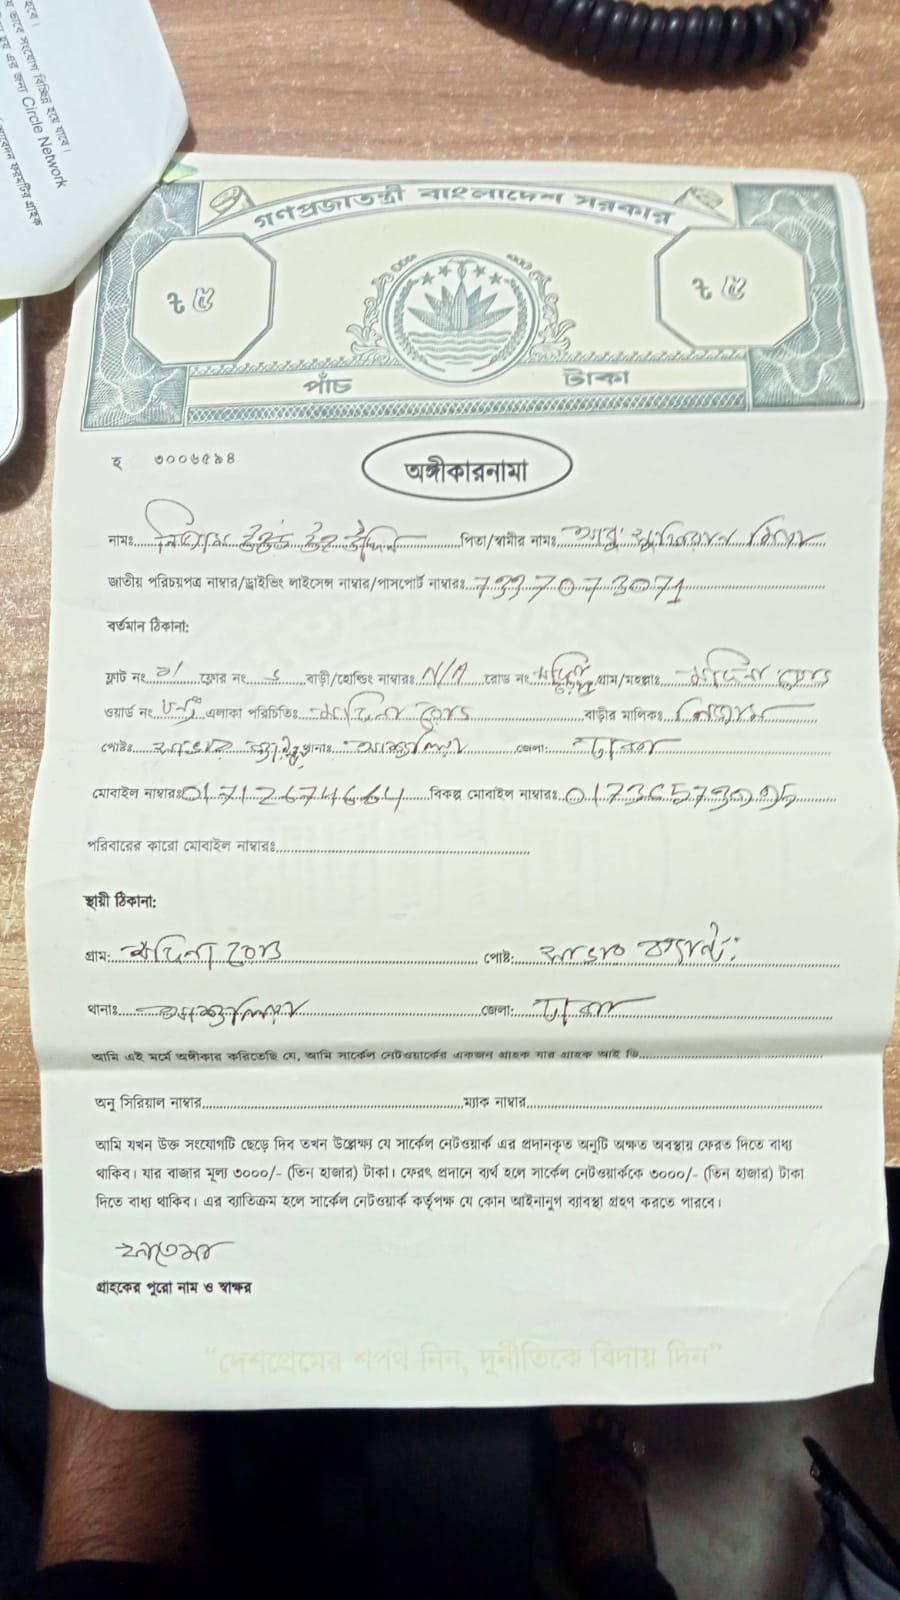 হবে।
ভাবে সংযোগ বিচ্ছিন্ন হয়ে যাবে।
হয় এর জন্য Circle Network
আবেদন ফরমটির গ্রাহক
গণপ্রজাতন্ত্রী বাংলাদেশ সরকার
৳ ৫ ৳ ৫
পাঁচ টাকা
হ ৩০০৬৫৯৪
অঙ্গীকারনামা
নামঃ পিতা/স্বামীর নামঃ
জাতীয় পরিচয়পত্র নাম্বার/ড্রাইভিং লাইসেন্স নাম্বার/পাসপোর্ট নাম্বারঃ 7337073071
বর্তমান ঠিকানা:
ফ্লাট নং ফ্লোর নং বাড়ী/হোল্ডিং নাম্বারঃ N/A রোড নং গ্রাম/মহল্লাঃ মদিনা রোড
ওয়ার্ড নং এলাকা পরিচিতিঃ মদিনা রোড বাড়ীর মালিকঃ নিজাম
পোষ্টঃ থানাঃ জেলা: ঢাকা
মোবাইল নাম্বারঃ 01712674664 বিকল্প মোবাইল নাম্বারঃ
পরিবারের কারো মোবাইল নাম্বারঃ
স্থায়ী ঠিকানা:
গ্রাম: মদিনা রোড পোষ্ট:
থানাঃ জেলা: ঢাকা
আমি এই মর্মে অঙ্গীকার করিতেছি যে, আমি সার্কেল নেটওয়ার্কের একজন গ্রাহক যার গ্রাহক আই ডি
অনু সিরিয়াল নাম্বার ম্যাক নাম্বার
আমি যখন উক্ত সংযোগটি ছেড়ে দিব তখন উল্লেক্ষ্য যে সার্কেল নেটওয়ার্ক এর প্রদানকৃত অনুটি অক্ষত অবস্থায় ফেরত দিতে বাধ্য
থাকিব। যার বাজার মূল্য ৩০০০/- (তিন হাজার) টাকা। ফেরৎ প্রদানে ব্যর্থ হলে সার্কেল নেটওয়ার্ককে ৩০০০/- (তিন হাজার) টাকা
দিতে বাধ্য থাকিব। এর ব্যাতিক্রম হলে সার্কেল নেটওয়ার্ক কর্তৃপক্ষ যে কোন আইনানুগ ব্যাবস্থা গ্রহণ করতে পারবে।
ফাতেমা
গ্রাহকের পুরো নাম ও স্বাক্ষর
“দেশপ্রেমের শপথ নিন, দুর্নীতিকে বিদায় দিন”